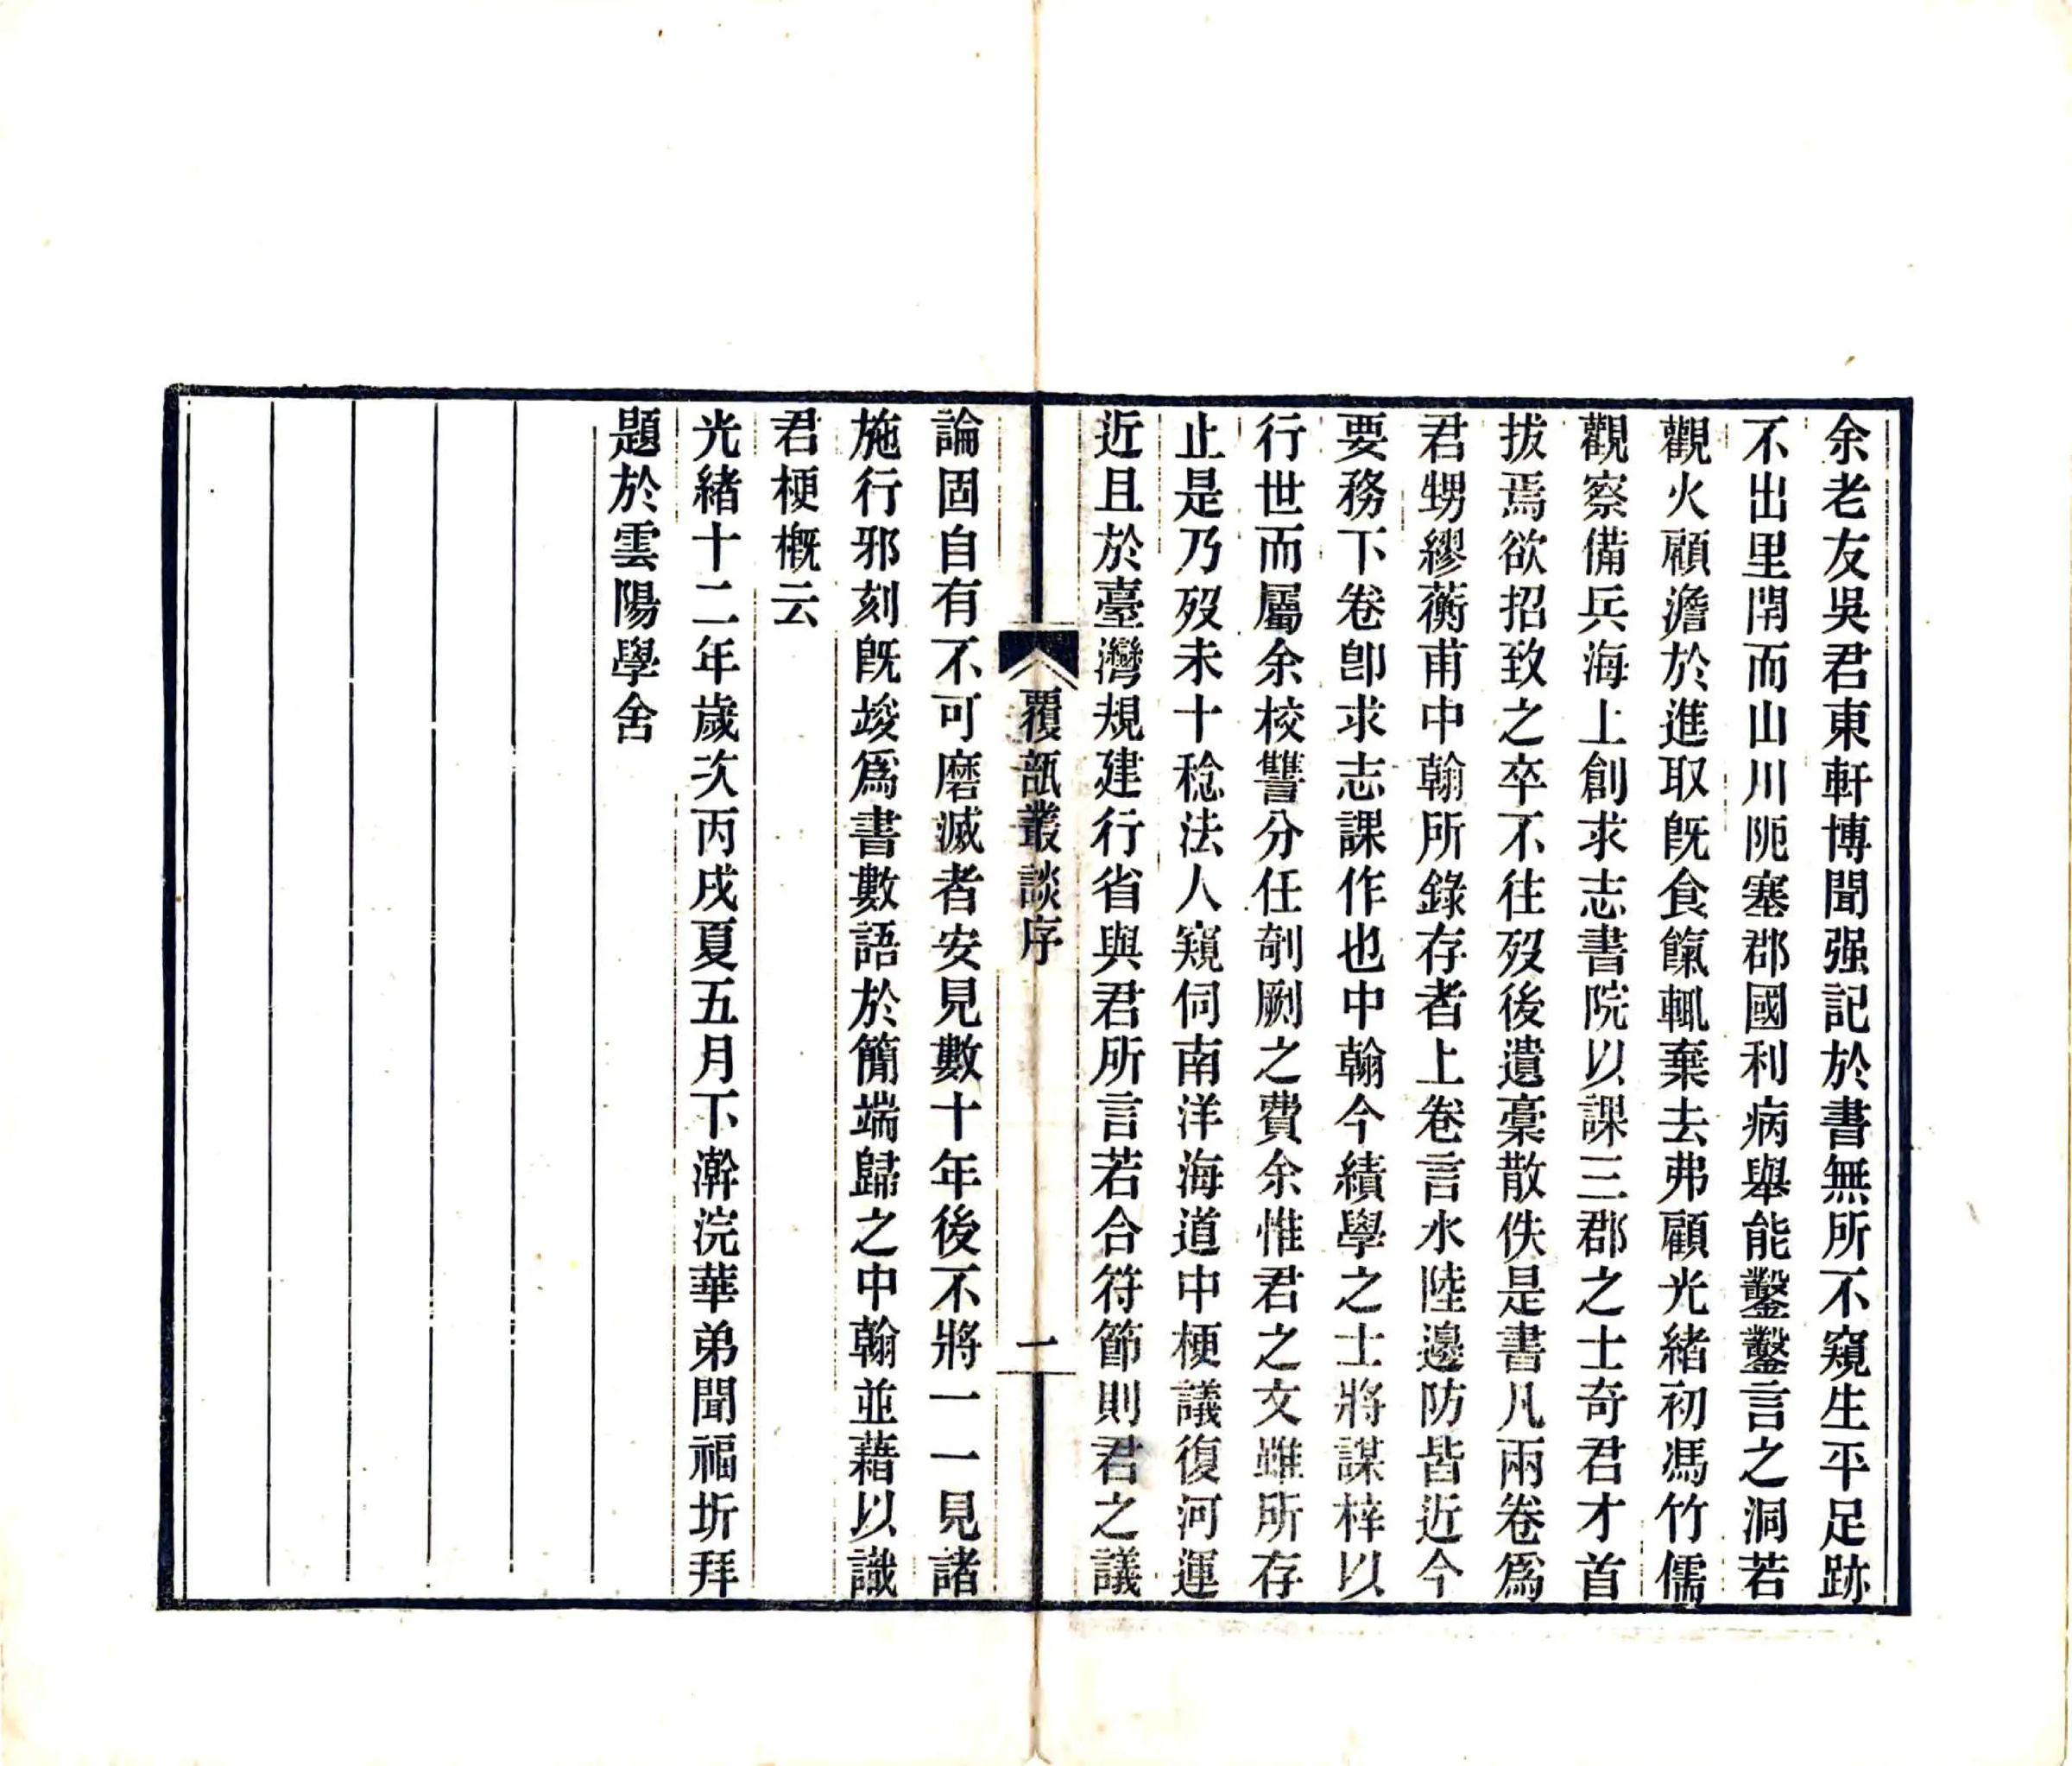 余老友吳君東軒博聞强記於書無所不窺生平足跡
不出里閈而山川阨塞郡國利病舉能鑿鑿言之洞若
觀火顧澹於進取旣食餼輒棄去弗顧光緒初馮竹儒
觀察備兵海上創求志書院以課三郡之士奇君才首
拔焉欲招致之卒不往歿後遺稾散佚是書凡兩卷爲
君甥繆蘅甫中翰所錄存者上卷言水陸邊防皆近今
要務下卷卽求志課作也中翰今績學之士將謀梓以
行世而屬余校讐分任剞劂之費余惟君之文雖所存
止是乃歿未十稔法人窺伺南洋海道中梗議復河運
近且於臺灣規建行省與君所言若合符節則君之議
覆瓿叢談序
一
論固自有不可磨滅者安見數十年後不將一一見諸
施行邪刻旣竣爲書數語於簡端歸之中翰並藉以識
君梗概云
光緒十二年歲次丙戌夏五月下澣浣華弟聞福圻拜
題於雲陽學舍